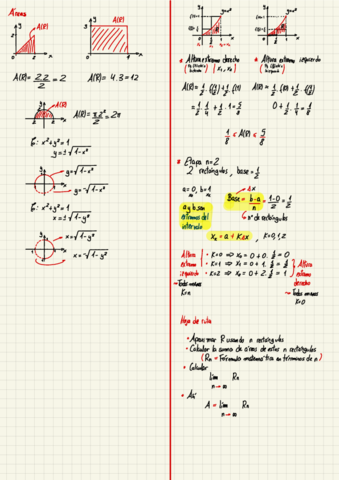 Áreas
y
A(R)
2
2
x
y
A(R)
4
x
A(R) = 2·2/2 = 2
A(R) = 4·3 = 12
A(R)
A(R) = π·2²/2 = 2π
x² + y² = 1
y = ±√1-x²
y = √1-x²
y = -√1-x²
x² + y² = 1
x = ±√1-y²
x = √1-y²
x = -√1-y²
y = x²
y = x²
Altura extremo derecho
Altura extremo izquierdo
A(R) = 1/2
A(R) = 1/2
= 1/2 · 1/4 + 1/2 · 1 = 5/8
0 + 1/2 · 1/4 = 1/8
1/8 ≤ A(R) ≤ 5/8
Etapa n=2
2 rectángulos, base = 1/2
a=0, b=1
Δx
Base = b-a/n = 1-0/2 = 1/2
nº de rectángulos
a y b son
extremos del
intervalo
xₖ = a + KΔx , K=0,1,2
Altura
extremo
izquierdo
K=0 ⇒ x₀ = 0 + 0·1/2 = 0
K=1 ⇒ x₁ = 0 + 1·1/2 = 1/2
K=2 ⇒ x₂ = 0 + 2·1/2 = 1
Altura
extremo
derecho
→ Todos menos
K=n
→ Todos menos
K=0
Hoja de ruta
• Aproximar R usando n rectángulos
• Calcular la suma de áreas de estos n rectángulos
(Rₙ = Fórmula matemática en términos de n)
• Calcular
lím Rₙ
n→∞
• Así
A = lím Rₙ
n→∞